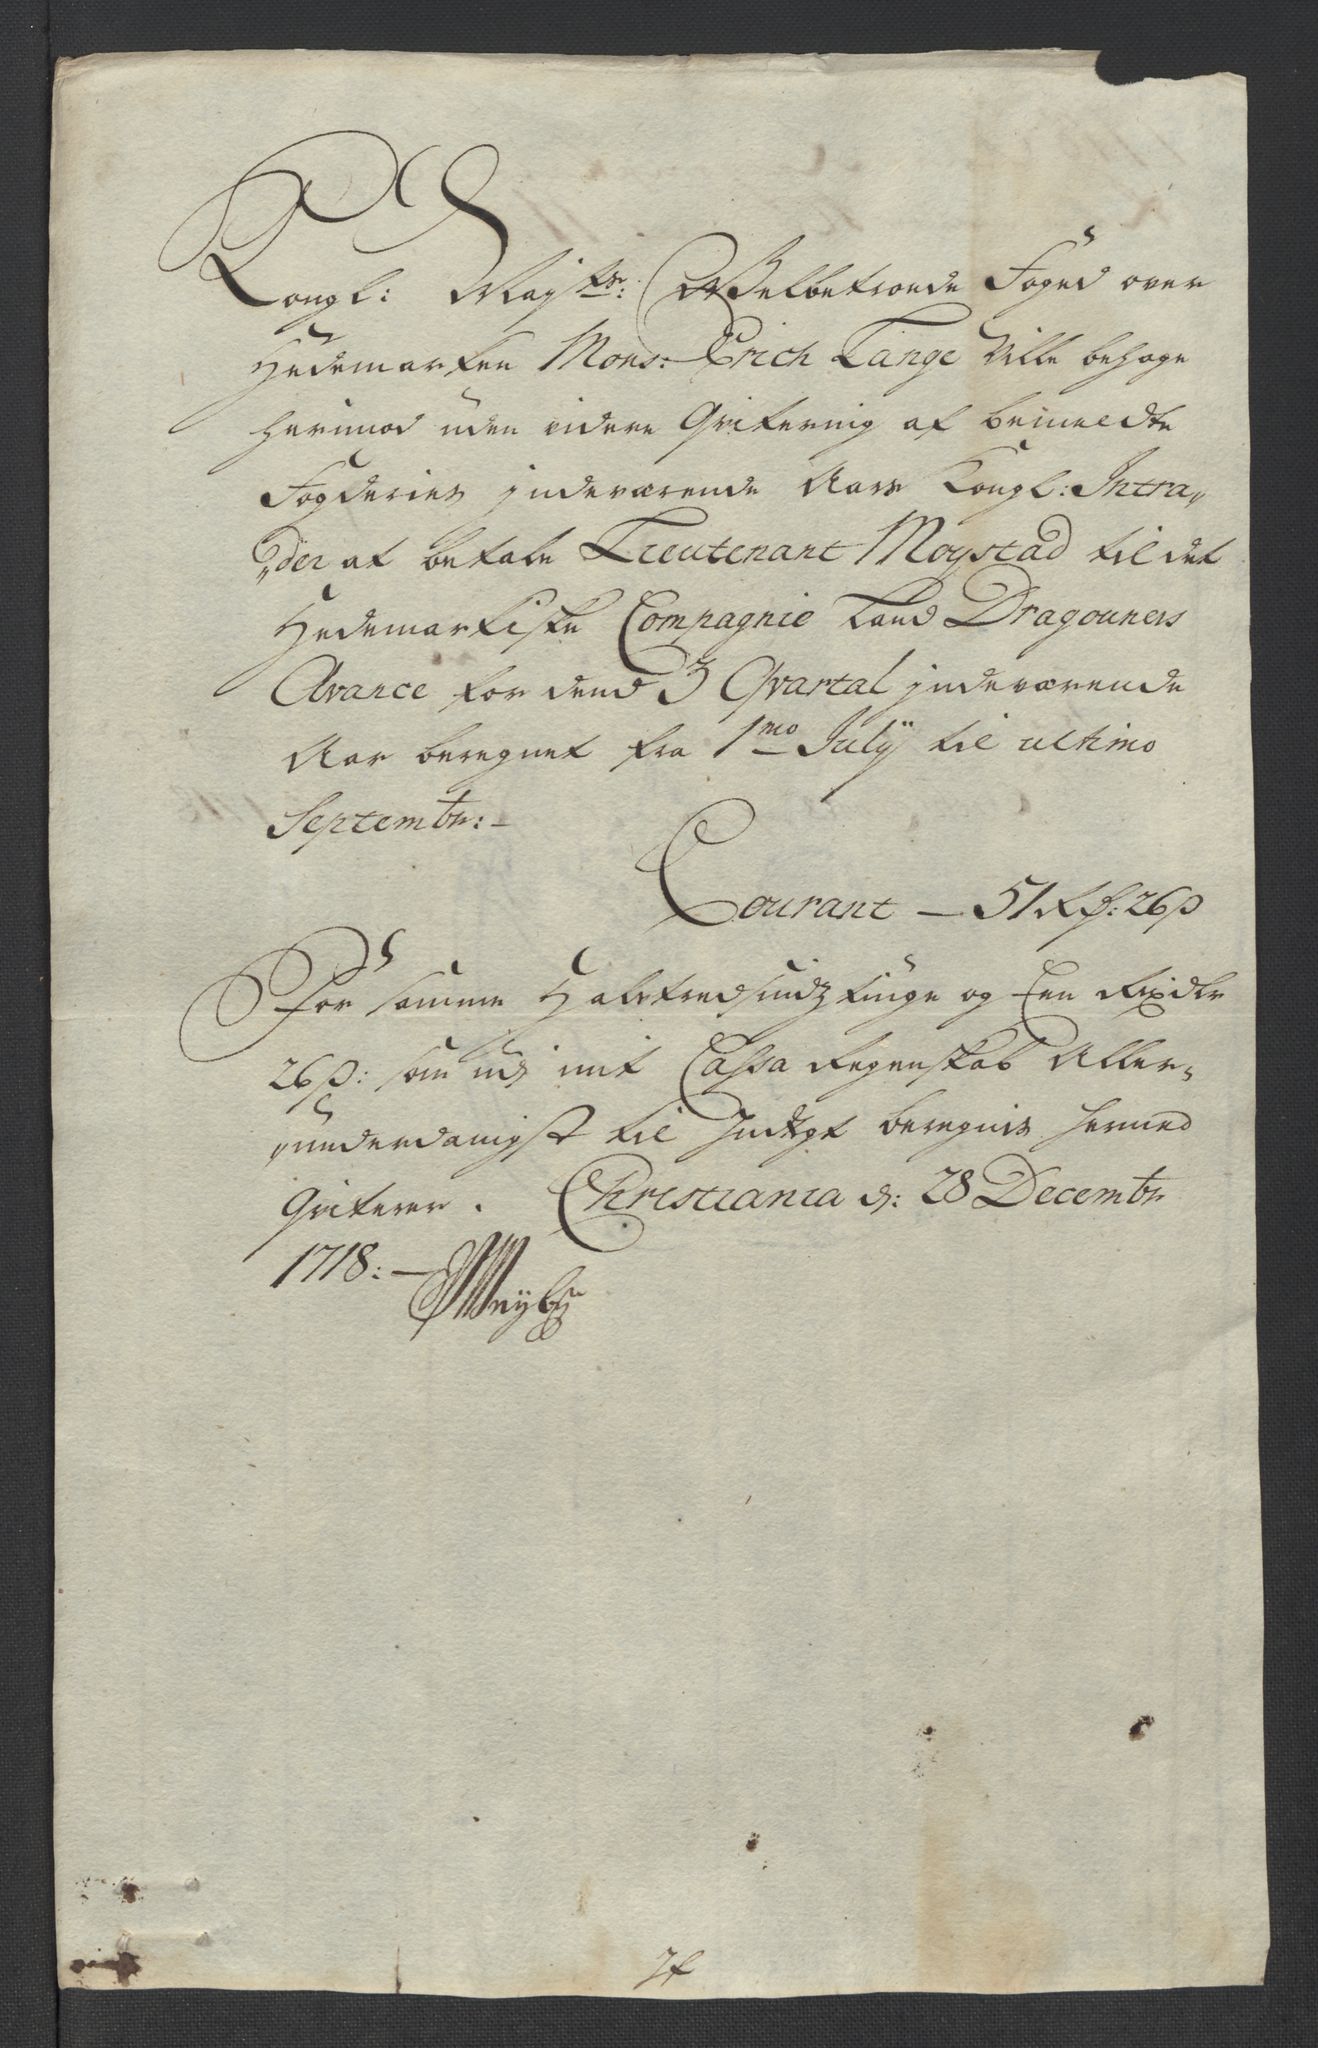 Kongl: Maj:ts: Welbetroede Foged over
Hedemarken Mons: Erich Lange Ville behage
herimod uden videre Qvitering af bemeldte
Fogderies indeværende Aars Kongl: Intra„
„der at betale Lieutenant Moystad til det
Hedemarkiske Compagnie Land Dragouners
Avance for dend 3 Qvartal indeværende
Aar beregnet fra 1mo Julÿ til ultimo
Septembr: –
Courant – 51 Rd: 26 ß
For samme Halvtredsindztiuge og Een Rixdlr
26 ß: som udj mit Cassa Regenskab Aller„
„underdanigst til Indtægt beregnis hermed
Qviterer. Christiania d: 28 Decembr
1718: –